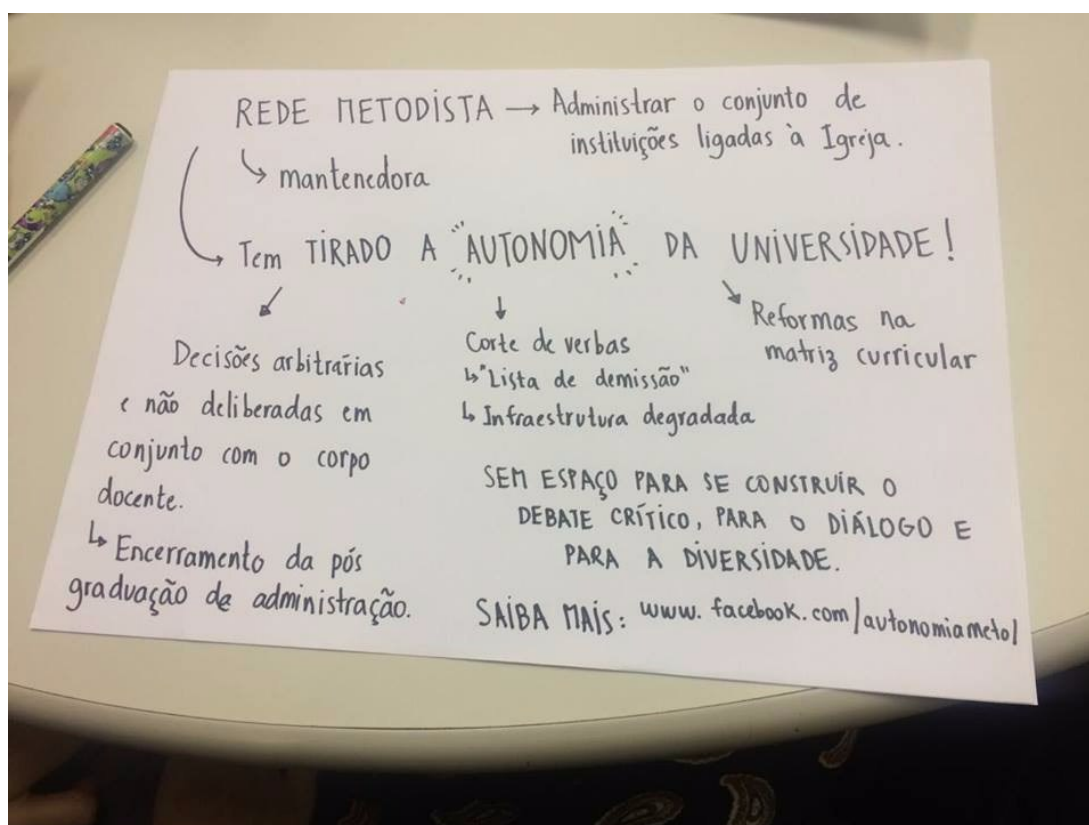 REDE METODISTA → Administrar o conjunto de
instituições ligadas à Igreja.
↳ mantenedora
↳ Tem TIRADO A "AUTONOMIA" DA UNIVERSIDADE!
Decisões arbitrárias
e não deliberadas em
conjunto com o corpo
docente.
↳ Encerramento da pós
graduação de administração.
Corte de verbas
↳ "Lista de demissão"
↳ Infraestrutura degradada
Reformas na
matriz curricular
SEM ESPAÇO PARA SE CONSTRUIR O
DEBATE CRÍTICO, PARA O DIÁLOGO E
PARA A DIVERSIDADE.
SAIBA MAIS: www.facebook.com/autonomiameto/